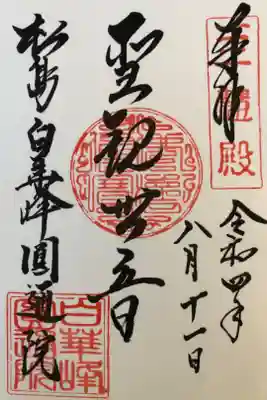 奉拝
殿
令和四年
八月十一日
聖観世音
松島 白華峰圓通院
白華峰
圓通院